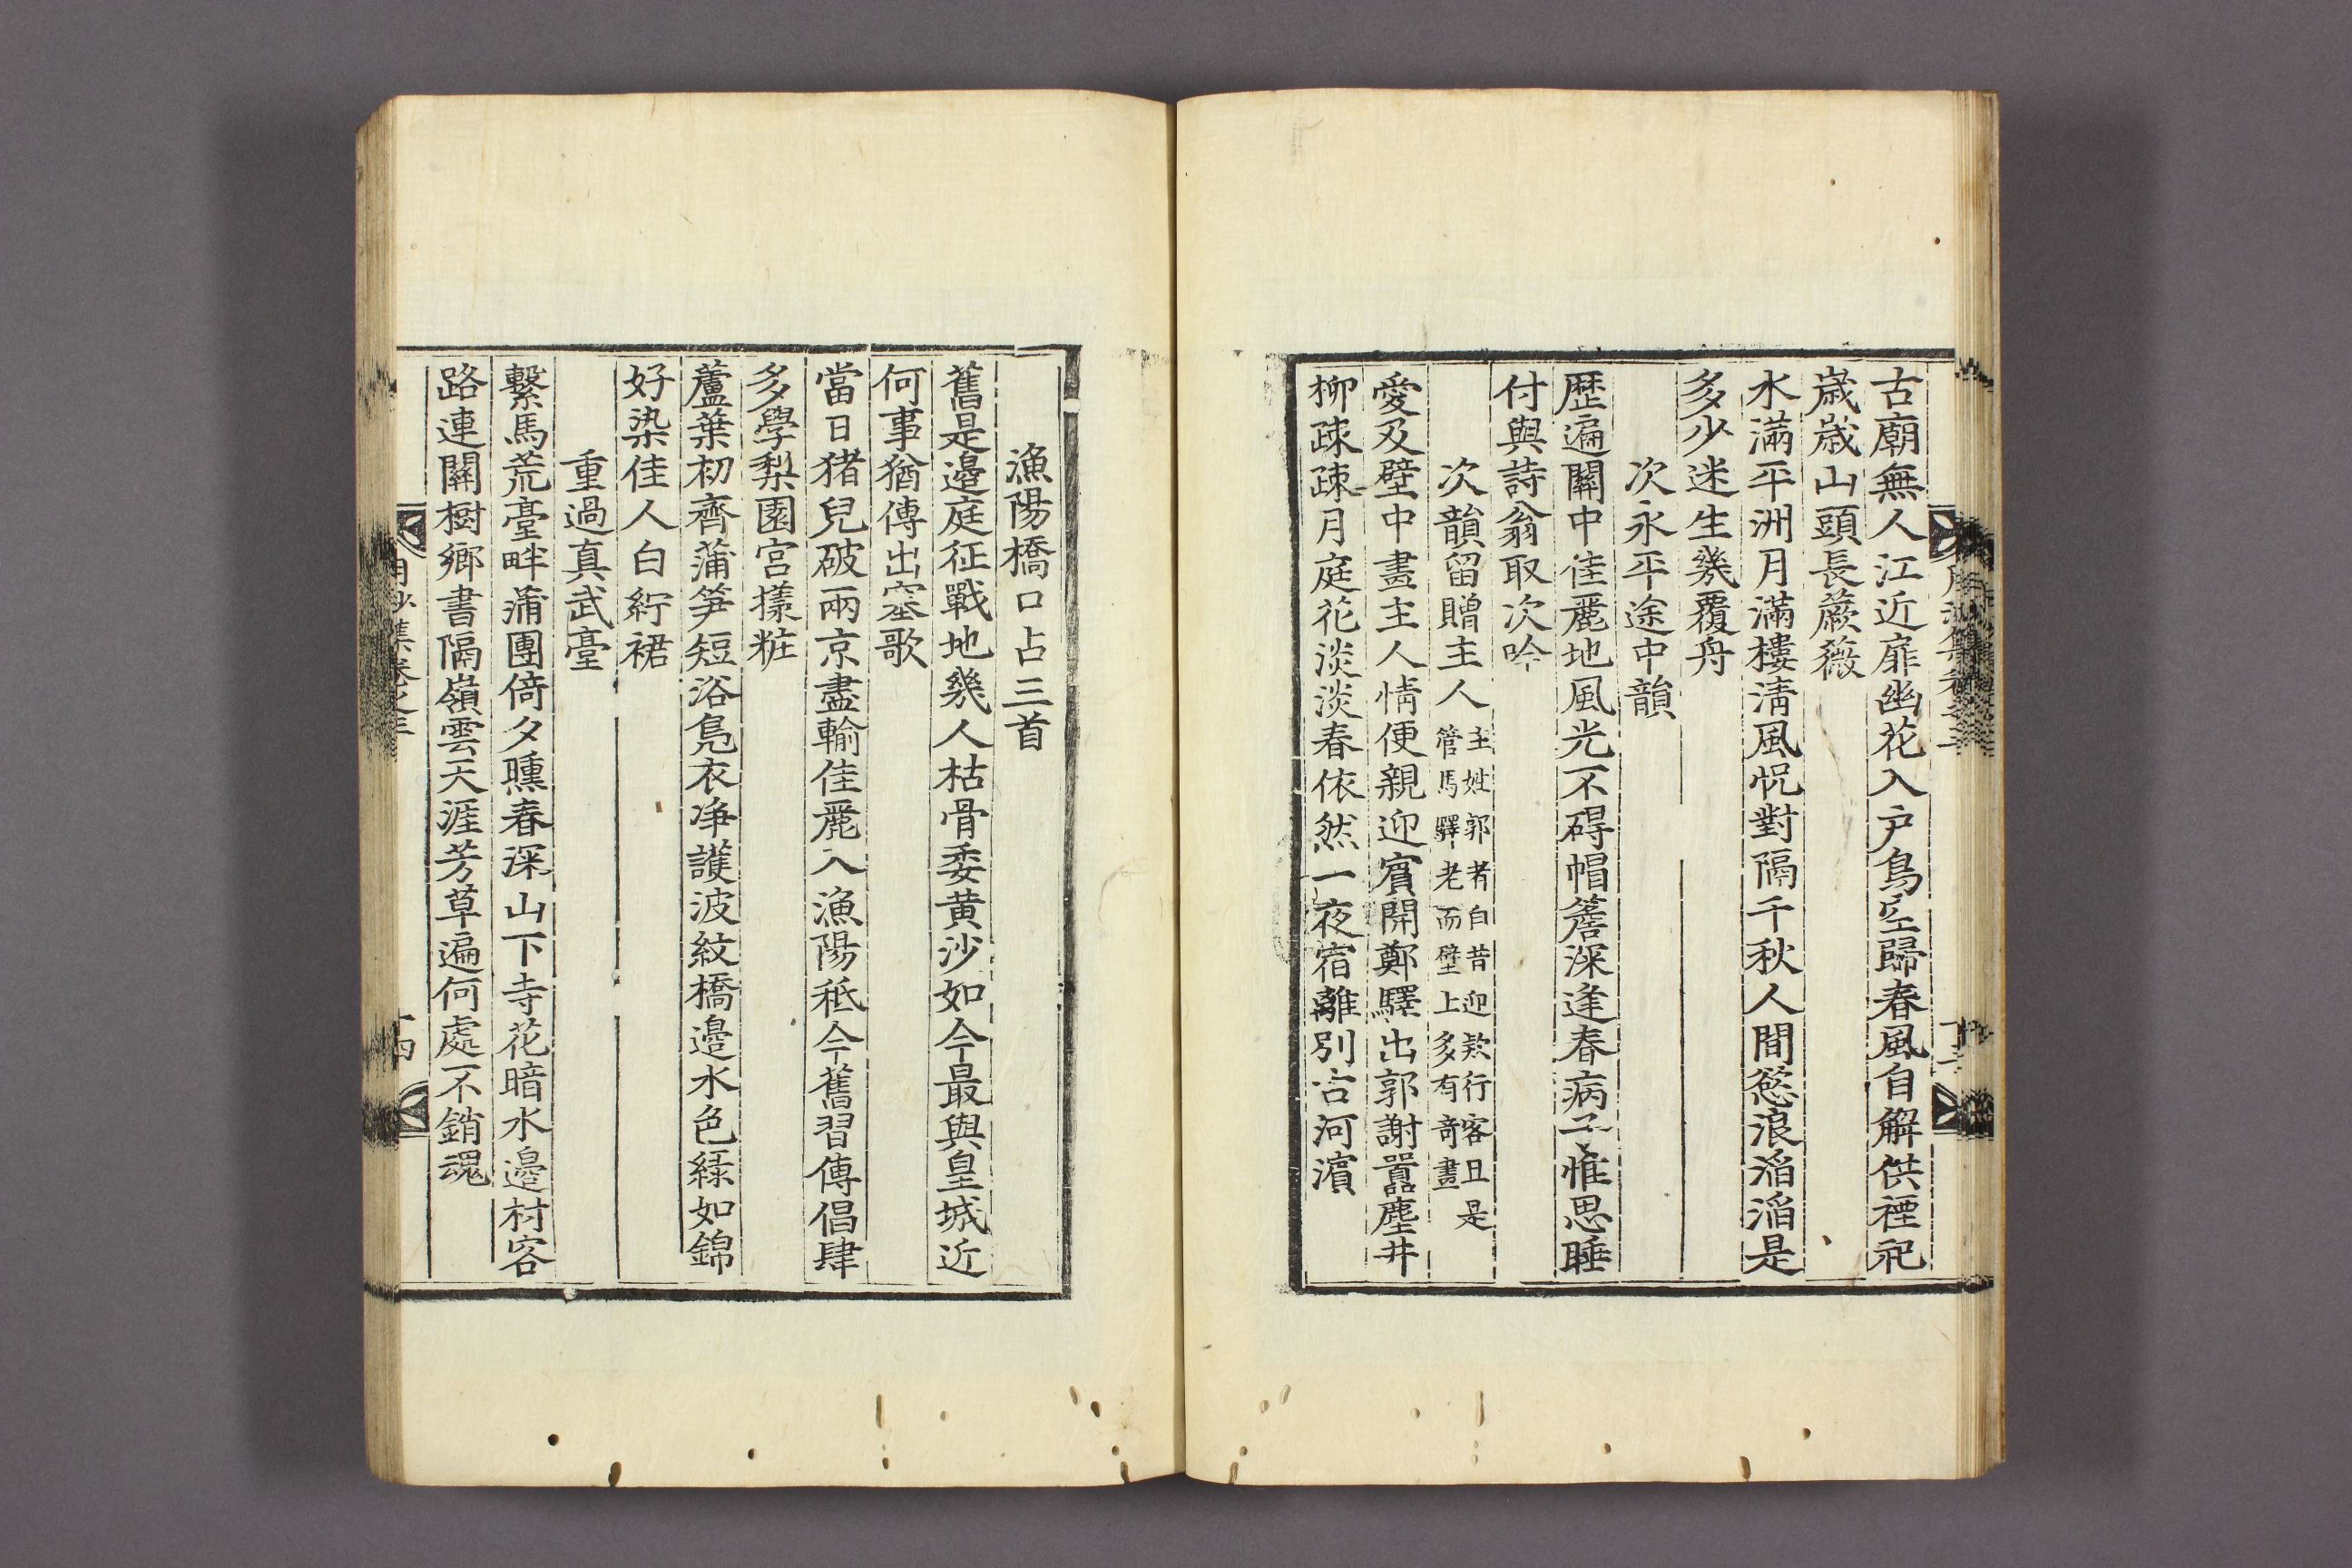 古廟無人江近扉幽花入户鳥空歸春風自解供禋祀
歲歲山頭長蕨薇
水滿平洲月滿樓清風怳對隔千秋人間慾浪滔滔是
多少迷生幾覆舟
次永平途中韻
歷遍關中佳麗地風光不碍帽簷深逢春病子惟思睡
付與詩翁取次吟
次韻留贈主人主姓郭者自昔迎款行客且是
管馬驛老而壁上多有奇畫
愛及壁中畫主人情便親迎賓開鄭驛出郭謝囂塵井
柳疎疎月庭花淡淡春依然一夜宿離別言河濱
漁陽橋口占三首
舊是邊庭征戰地幾人枯骨委黄沙如今最與皇城近
何事猶傳出塞歌
當日猪兒破兩京盡輸佳麗入漁陽秪今舊習傳倡肆
多學梨園宮㨾粧
蘆葉初齊蒲笋短浴鳬衣净護波紋橋邊水色綠如錦
好染佳人白紵裙
重過真武臺
繫馬荒臺畔蒲團倚夕曛春深山下寺花暗水邊村客
路連關樹鄉書隔嶺雲天涯芳草遍何處不銷魂
月沙集卷之三
十四